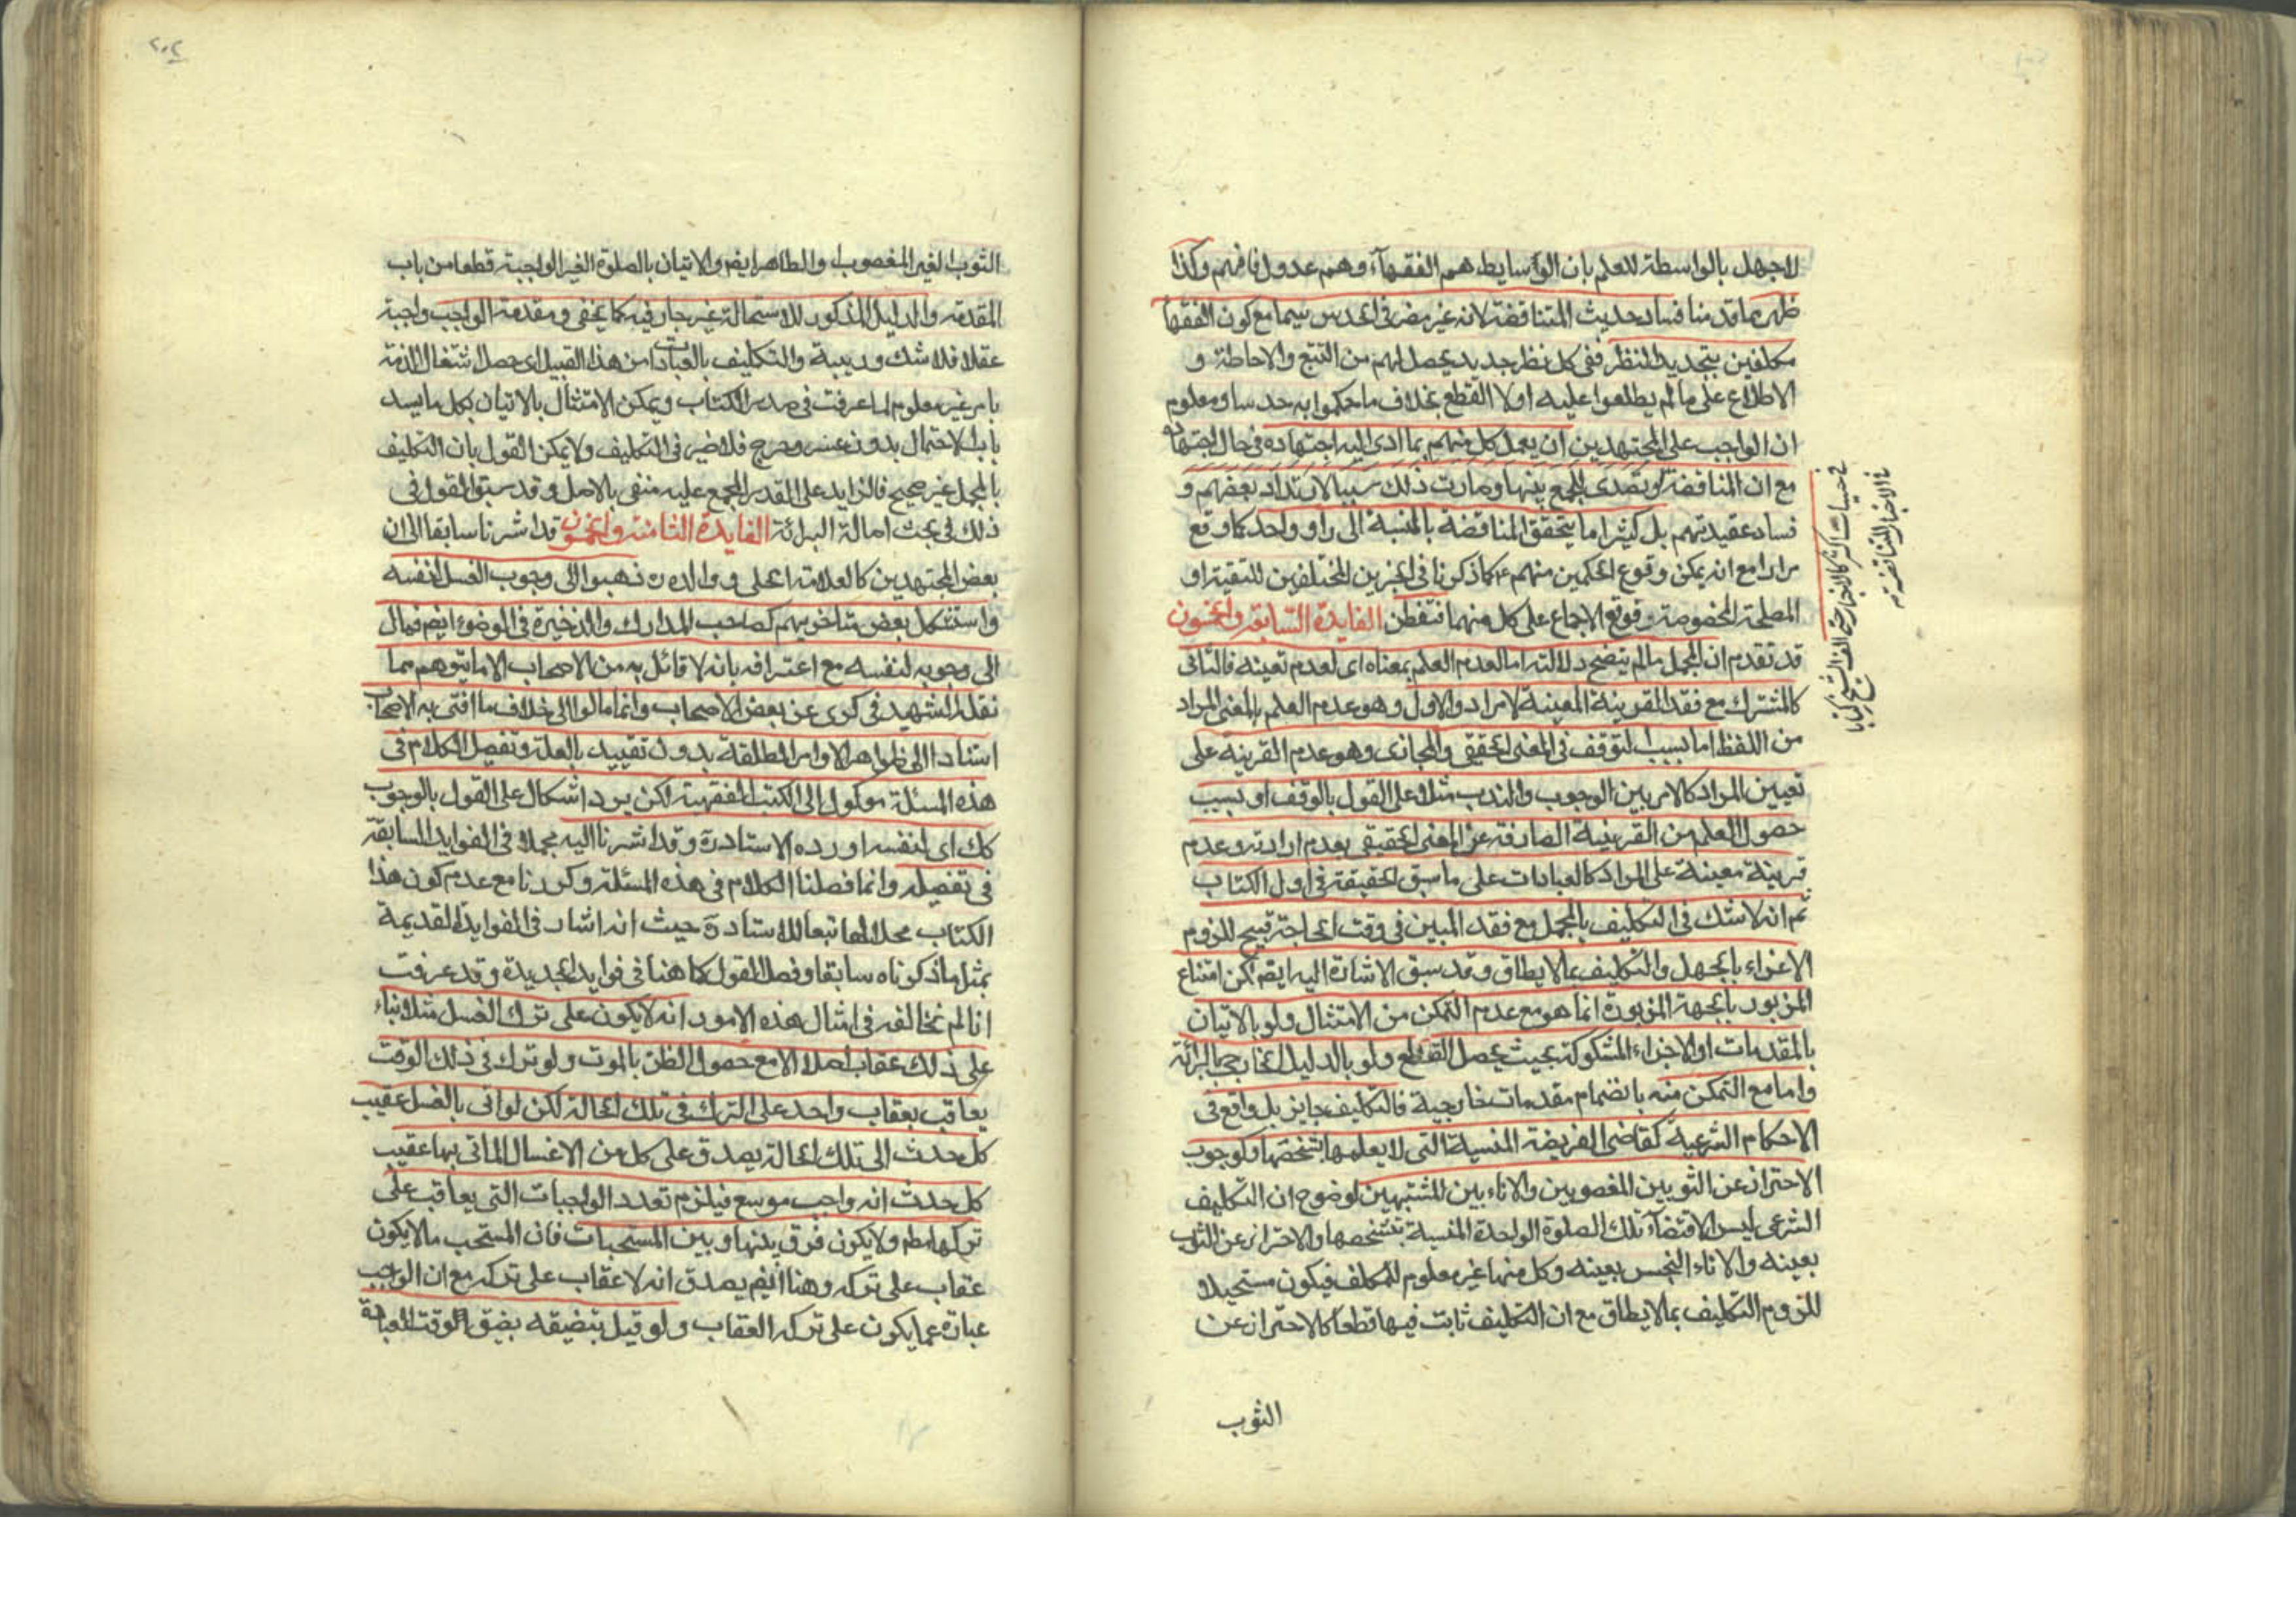 لاجهل بالواسطة للعلم بان الوسايط هم الفقهآء وهم عدول فافهم وكذا
ظهر مما قدمنا فساد حديث المتناقضة لانه غير مضر فى الحدس سيما مع كون الفقهآ
مكلفين بتجديد النظر ففى كل نظر جديد يحصل لهم من التتبع والاحاطة و
الاطلاع على ما لم يطلعوا عليه اولا القطع بخلاف ما حكموا به حدسا ومعلوم
ان الواجب على المجتهدين ان يعمل كل منهم بما ادى اليه اجتهاده فى حال اجتهاده
مع ان المناقضة لو تصدى للجمع بينها وصارت ذلك سببا لارتداد بعضهم و
فساد عقيدتهم بل كثيرا ما يتحقق المناقضة بالنسبة الى راو واحد كما وقع
مرارا مع انه يمكن وقوع الحكمين منهم ع كما ذكرنا فى الخبرين المختلفين للتقية او
المصلحة المخصوصة وقوع الاجماع على كل منهما فتفطن الفايدة السابعة والخمسون
قد تقدم ان المجمل ما لم يتضح دلالته اما لعدم العلم بمعناه اى لعدم تعينه فالثانى
كالمشترك مع فقد القرينة المعينة لامراد والاول وهو عدم العلم بالمعنى المراد
من اللفظ اما بسبب لتوقف فى المعنى الحقيقى والمجازى وهو عدم القرينة على
تعيين المراد كالامر بين الوجوب والندب مثلا على القول بالوقف او بسبب
حصول العلم من القرينة الصارفة عن المعنى الحقيقى بعدم ارادته وعدم
قرينة معينة على المراد كالعبادات على ما سبق الحقيقة فى اول الكتاب
ثم انه لا شك فى التكليف بالمجمل مع فقد المبين فى وقت الحاجة قبيح للزوم
الاغراء بالجهل والتكليف بما لا يطاق وقد سبق الاشارة اليه ايضا لكن امتناع
المزبور بالجهة المزبورة انما هو مع عدم التمكن من الامتثال ولو بالاتيان
بالمقدمات او الاجزاء المشكوكة بحيث يحصل القطع ولو بالدليل الخارجى البرائة
واما مع التمكن منه بانضمام مقدمات خارجية فالتكليف جايز بل واقع فى
الاحكام الشرعية كقاضى الفريضة المنسية التى لا يعلمها بتشخصها وكوجوب
الاحتراز عن الثوبين المغصوبين والاناءبين المشتبهين لوضوح ان التكليف
الشرعى ليس الا قتضآء تلك الصلوة الواحدة المنسية بتشخصها والاحتراز عن الثوب
بعينه والاناء النجس بعينه وكل منها غير معلوم للمكلف فيكون مستحيلا
للزوم التكليف بما لا يطاق مع ان التكليف ثابت فيها قطعا كالاحتراز عن
الثوب
فى الاخبار المتناقضة
الثوب الغير المغصوب والطاهر ايضا والاتيان بالصلوة الغير الواجبة قطعا من باب
المقدمة والدليل المذكور للاستحالة غير جار فيه كما يخفى ومقدمة الواجب واجبة
عقلا فلا شك وريبة والتكليف بالعبادات من هذا القبيل اى حصل اشتغال الذمة
بامر غير معلوم لما عرفت فى صدر الكتاب ويمكن الامتثال بالاتيان بكل ما يسد
باب الاحتمال بدون عسر وحرج فلا ضير فى التكليف ولا يمكن القول بان التكليف
بالمجمل غير صحيح فالزايد على القدر المجمع عليه منفى بالاصل وقد سبق القول فى
ذلك فى بحث اصالة البرائة الفايدة الثامنة والخمسون قد اشرنا سابقا الى ان
بعض المجتهدين كالعلامة الحلى ره والده ره ذهبوا الى وجوب الغسل لنفسه
واستشكل بعض متاخريهم كصاحب المدارك والذخيرة فى الوضوء ايضا فمال
الى وجوبه لنفسه مع اعترافه بانه لا قائل به من الاصحاب الا ما يتوهم مما
نقله الشهيد فى كرى عن بعض الاصحاب وانما مالوا الى خلاف ما افتى به الاصحاب
استنادا الى ظواهر الاوامر المطلقة بدون تقييد بالعلة وتفصيل الكلام فى
هذه المسئلة موكول الى الكتب الفقهية لكن يرد اشكال على القول بالوجوب
كك اى لنفسه اورده الاستاد ره وقد اشرنا اليه مجملا فى الفوايد السابقة
فى تفصيله وانما فصلنا الكلام فى هذه المسئلة وكررنا مع عدم كون هذا
الكتاب محلا لها تبعا للاستاد ره حيث انه اشار فى الفوايد القديمة
بمثل ما ذكرناه سابقا وفصل القول كما هنا فى فوايد الجديدة وقد عرفت
انا لم نخالفه فى امثال هذه الامور انه لا يكون على ترك الغسل مثلا بناء
على ذلك عقاب اصلا الا مع حصول الظن بالموت ولو ترك فى ذلك الوقت
يعاقب بعقاب واحد على الترك فى تلك الحالة لكن لو اتى بالغسل عقيب
كل حدث الى تلك الحالة يصدق على كل من الاغسال الماتى بها عقيب
كل حدث انه واجب موسع فيلزم تعدد الواجبات التى يعاقب على
تركها مطم ولا يكون فرق بينها وبين المستحبات فان المستحب ما لا يكون
عقاب على تركه وهنا ايضا يصدق انه لا عقاب على تركه مع ان الواجب
عبارة عما يكون على تركه العقاب ولو قيل بتضيقه بضيق الوقت للعبادة